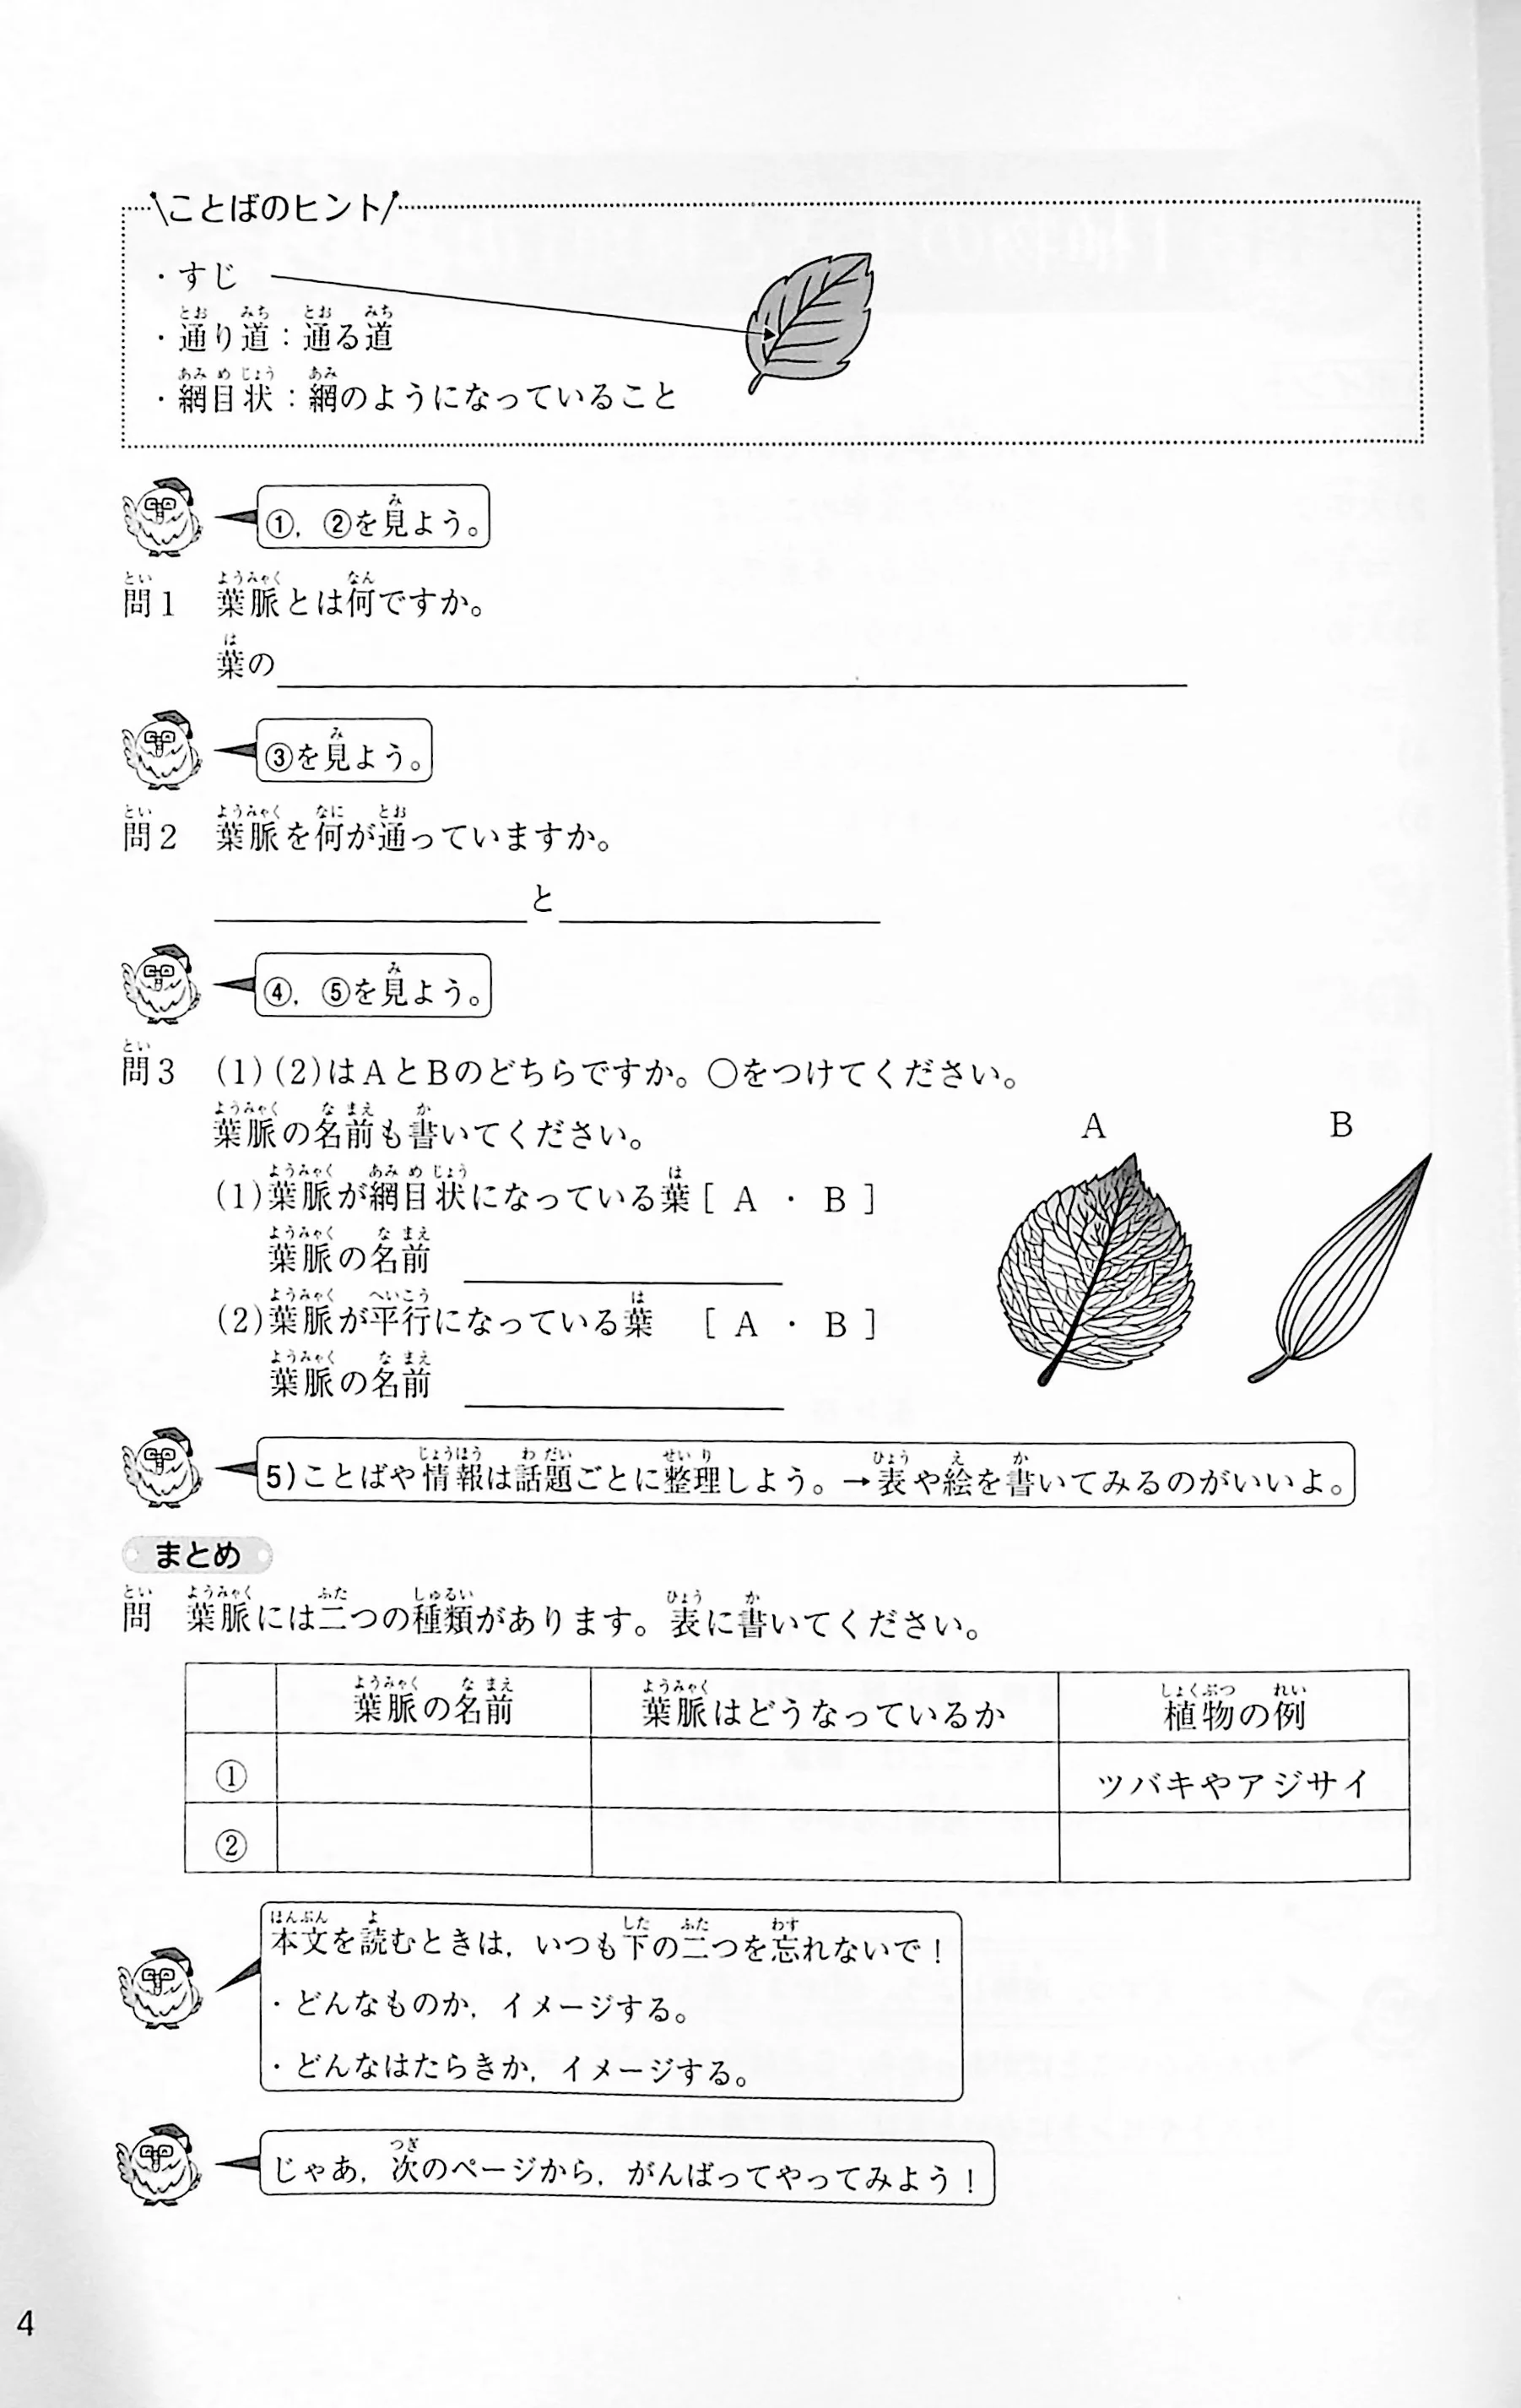 ことばのヒント
・すじ
・通り道：通る道
・網目状：網のようになっていること
①，②を見よう。
問1 葉脈とは何ですか。
葉の
③を見よう。
問2 葉脈を何が通っていますか。
と
④，⑤を見よう。
問3 (1)(2)はAとBのどちらですか。○をつけてください。
葉脈の名前も書いてください。
A B
(1)葉脈が網目状になっている葉［ A ・ B ］
葉脈の名前
(2)葉脈が平行になっている葉 ［ A ・ B ］
葉脈の名前
5)ことばや情報は話題ごとに整理しよう。→表や絵を書いてみるのがいいよ。
まとめ
問 葉脈には二つの種類があります。表に書いてください。
葉脈の名前 葉脈はどうなっているか 植物の例
① ツバキやアジサイ
②
本文を読むときは，いつも下の二つを忘れないで！
・どんなものか，イメージする。
・どんなはたらきか，イメージする。
じゃあ，次のページから，がんばってやってみよう！
4